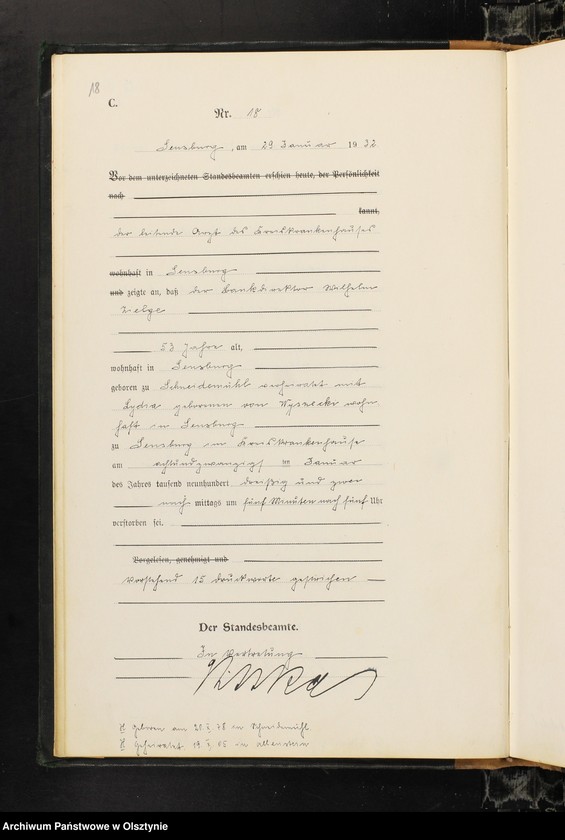 18
C.
Nr. 18
Sensburg, am 29 Januar 1932
Vor dem unterzeichneten Standesbeamten erschien heute, der Persönlichkeit
nach
kannt,
der leitende Arzt des Kreiskrankenhauses
wohnhaft in Sensburg
und zeigte an, daß der Bankdirektor Wilhelm
53 Jahre alt,
wohnhaft in Sensburg
geboren zu Schneidemühl verheiratet mit
Lydia geborenen von wohn
haft in Sensburg
zu Sensburg im Kreiskrankenhause
am achtundzwanzigsten Januar
des Jahres tausend neunhundert dreißig und zwei
nach mittags um fünf Minuten nach fünf Uhr
verstorben sei.
Vorgelesen, genehmigt und
Vorstehend 15 Druckworte gestrichen
Der Standesbeamte.
In Vertretung
geboren am in Schneidemühl
Geheiratet in Allenstein
Archiwum Państwowe w Olsztynie